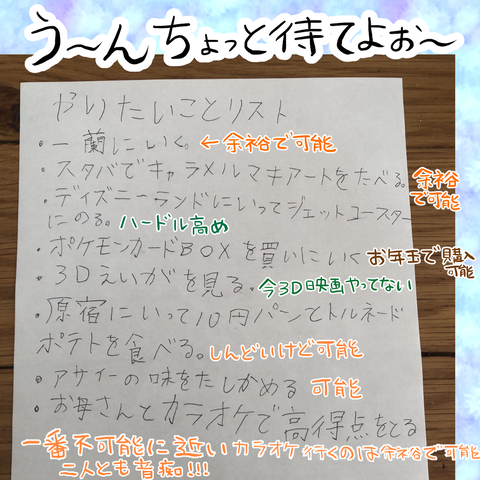 う〜んちょっと待てよぉ〜
やりたいことリスト
・一蘭にいく。←余裕で可能
・スタバでキャラメルマキアートをたべる。余裕で可能
・ディズニーランドにいってジェットコースター
にのる。ハードル高め
・ポケモンカードBOXを買いにいくお年玉で購入可能
・3Dえいがを見る。今3D映画やってない
・原宿にいって10円パンとトルネード
ポテトを食べる。しんどいけど可能
・アサイーの味をたしかめる 可能
・お母さんとカラオケで高得点をとる
一番不可能に近いカラオケ行くのは余裕で可能
二人とも音痴!!!